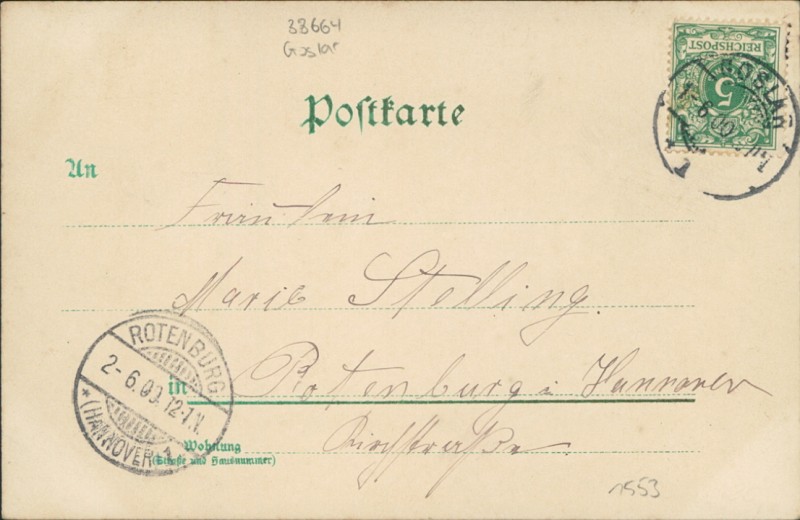 38664
Goslar
REICHSPOST
5
GOSLAR
1-6.00
Postkarte
An
Fräulein
Marie Stelling.
in Rotenburg i Hannover
Wohnung
(Straße und Hausnummer)
Kirchstraße.
ROTENBURG
2-6.00.12-7.V.
* (HANNOVER) 1
1553